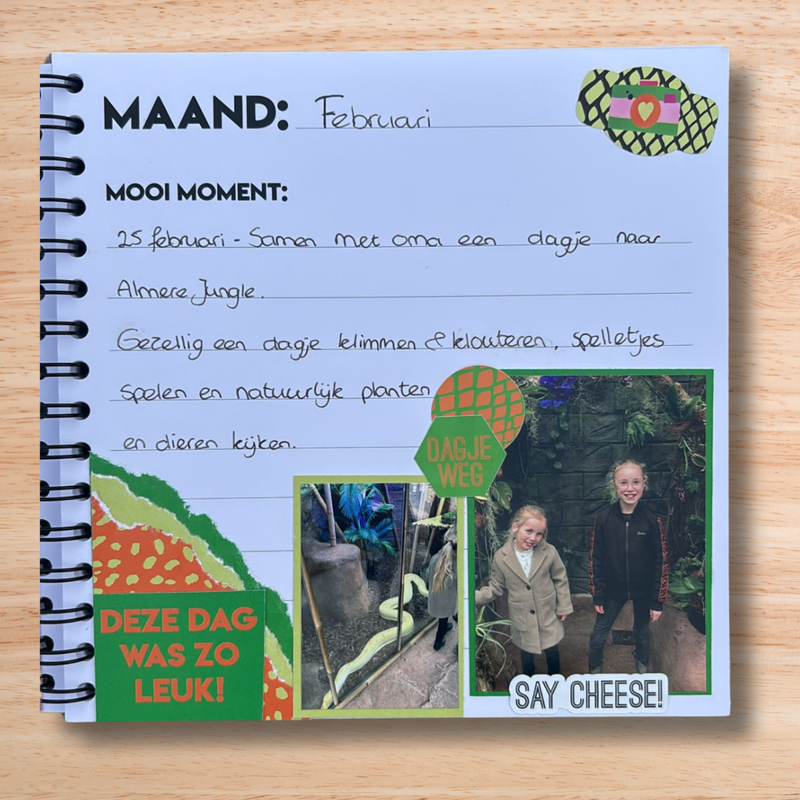 MAAND: Februari
MOOI MOMENT:
25 februari - Samen met oma een dagje naar
Almere Jungle.
Gezellig een dagje klimmen & klouteren, spelletjes
spelen en natuurlijk planten
en dieren kijken.
DAGJE
WEG
DEZE DAG
WAS ZO
LEUK!
SAY CHEESE!